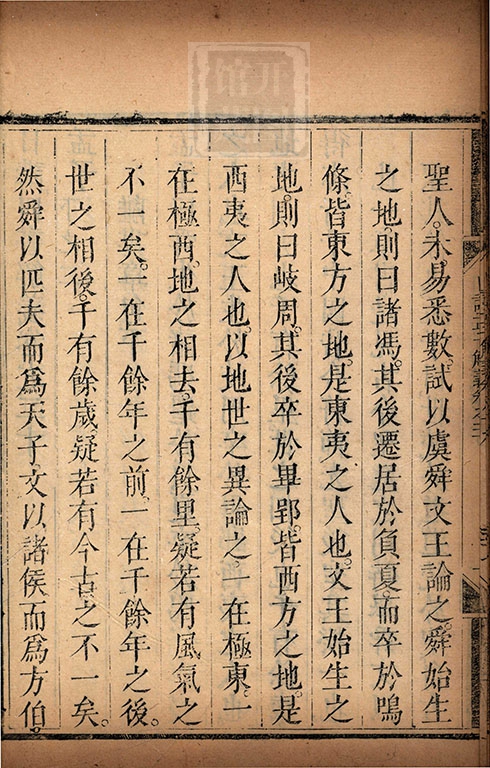 聖人未易悉數試以虞舜文王論之舜始生
之地則曰諸馮其後遷居於負夏而卒於鳴
條皆東方之地是東夷之人也文王始生之
地則曰岐周其後卒於畢郢皆西方之地是
西夷之人也以地世之異論之一在極東一
在極西地之相去千有餘里疑若有風氣之
不一矣一在千餘年之前一在千餘年之後
世之相後千有餘歲疑若有今古之不一矣
然舜以匹夫而爲天子文以諸侯而爲方伯